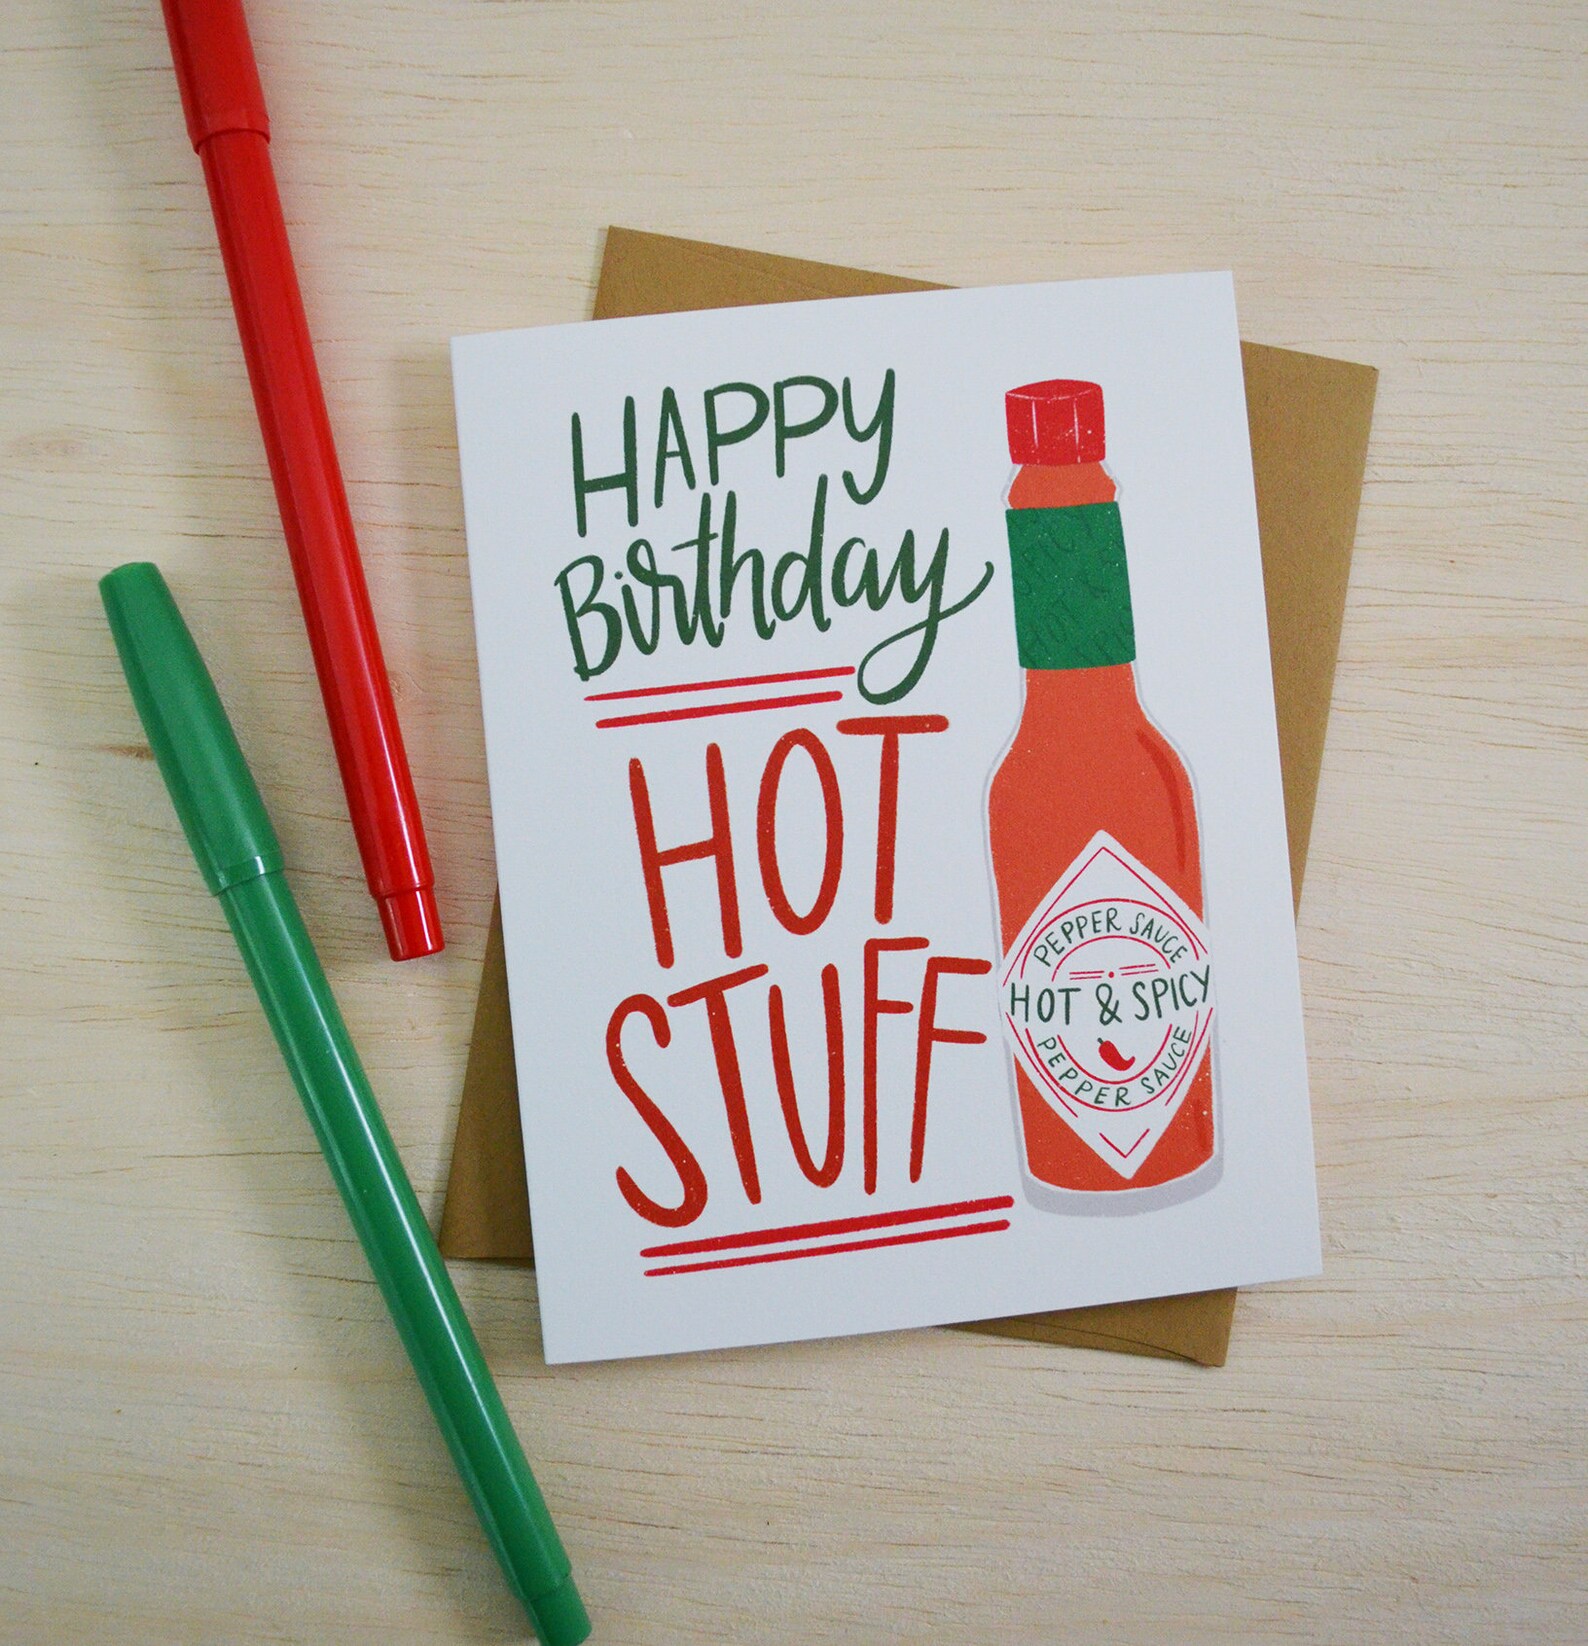 HAPPY
Birthday
HOT
STUFF
PEPPER SAUCE
HOT & SPICY
PEPPER SAUCE